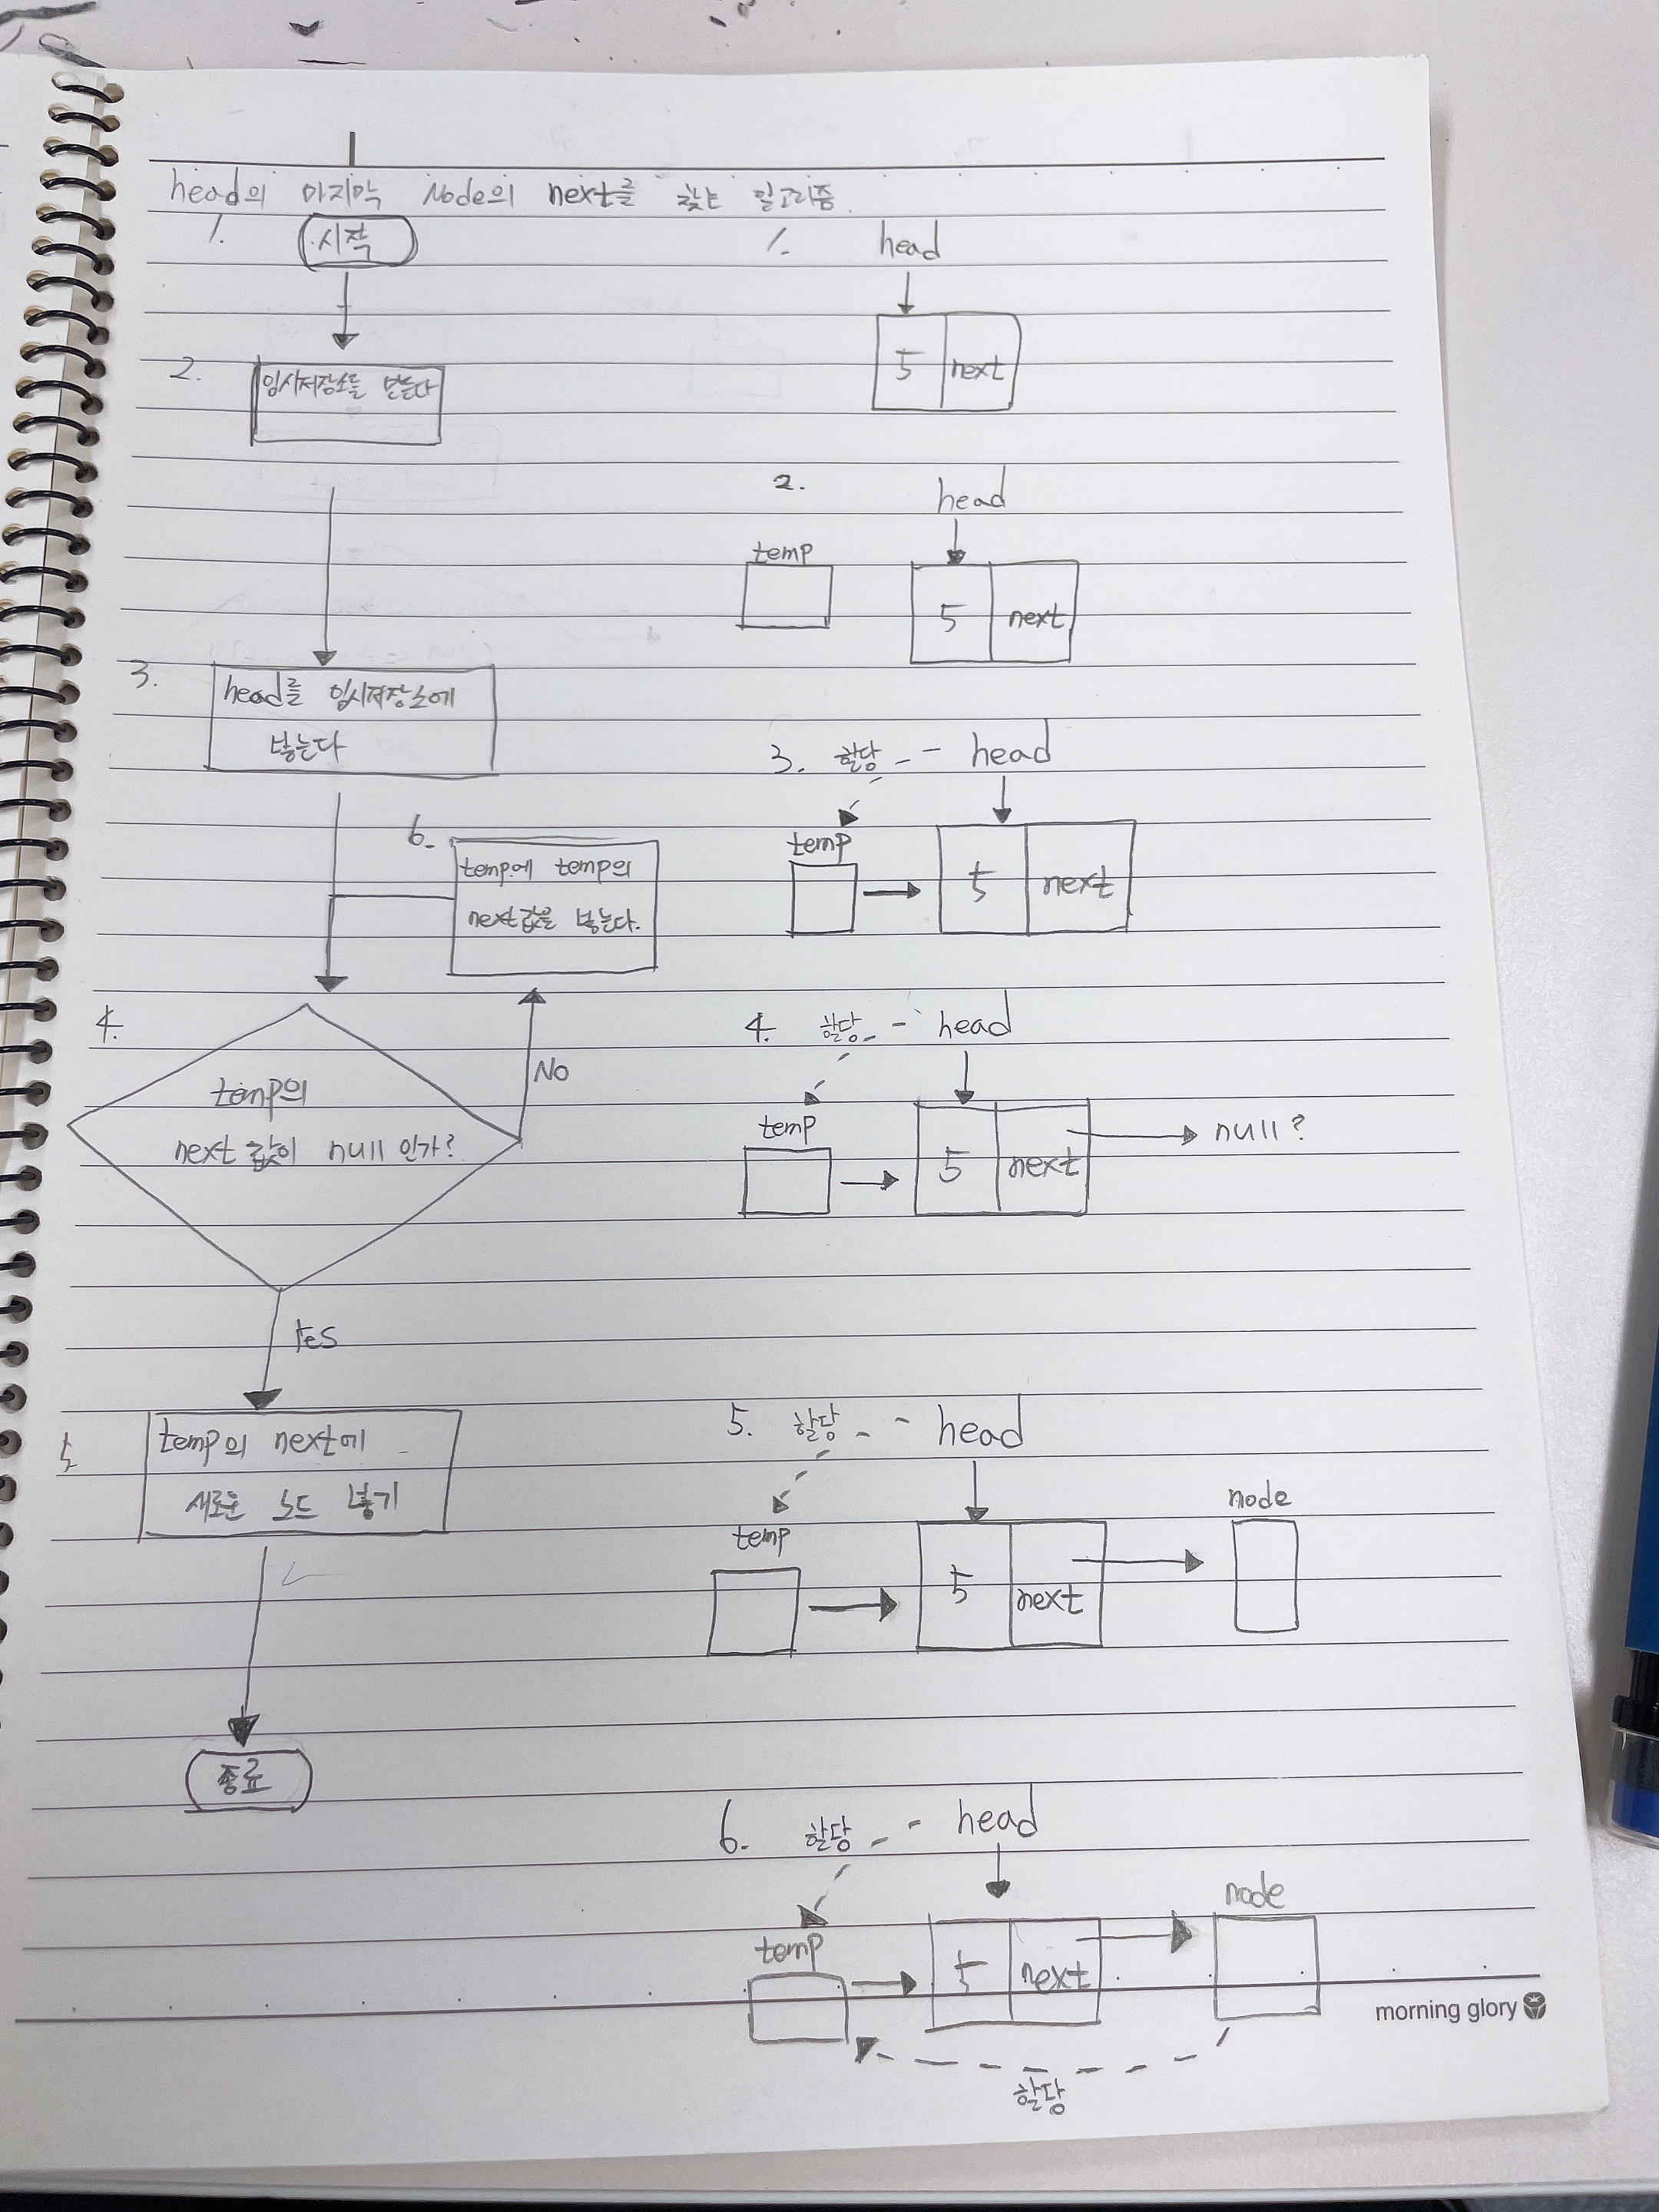 head의 마지막 Node의 next를 찾는 알고리즘.
1. 시작
2. 임시저장소를 만든다
3. head를 임시저장소에
넣는다
6. temp에 temp의
next값을 넣는다.
4. temp의
next 값이 null 인가?
No
Yes
5. temp의 next에
새로운 노드 넣기
종료
1. head
5 next
2. head
temp
5 next
3. 할당 head
temp
5 next
4. 할당 head
temp
5 next null?
5. 할당 head
temp node
5 next
6. 할당 head
temp node
5 next
할당
morning glory